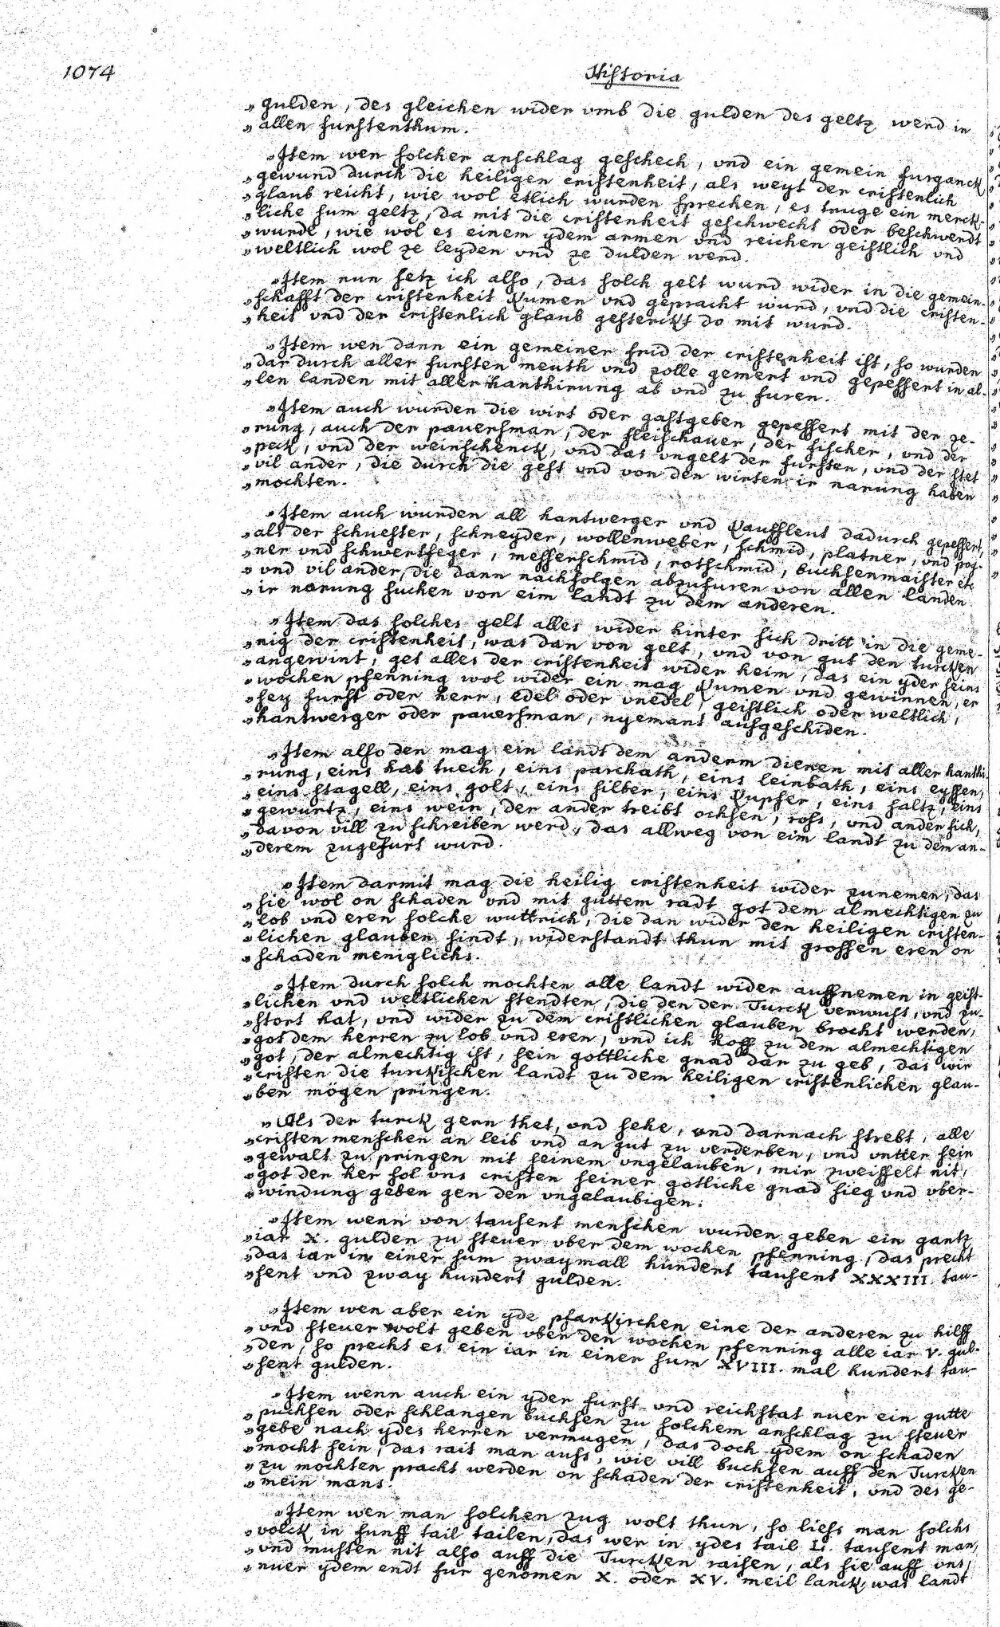 1074
Historia
„ gulden, des gleichen wider vmb die gulden des geltz werd in
„ allen furstenthum.
„ Item wen solcher anschlag geschech, vnd ein gemein furganck
„ gewund durch die heiligen cristenheit, als weyt der cristenlich
„ glaub reicht, wie wol etlich wurden sprechen, es truge ein merck-
„ liche sum geltz, da mit die cristenheit geschwecht oder beschwerdt
„ wurde, wie wol es einem ydem armen vnd reichen geistlich vnd
„ weltlich wol ze leyden vnd ze dulden werd.
„ Item nun setz ich also, das solch gelt wurd wider in die gemein-
„ schafft der cristenheit kumen vnd gepracht wurd, vnd die cristen-
„ heit vnd der cristenlich glaub gesterckt do mit wurd.
„ Item wen dann ein gemeiner frid der cristenheit ist, so wurden
„ dar durch aller fursten meuth vnd zolle gemert vnd gepessert in al-
„ len landen mit aller hanthirung ab vnd zu furen.
„ Item auch wurden die wirt oder gastgeben gepessert mit der ze-
„ rung, auch der pauersman, der fleischauer, der fischer, vnd der
„ peck, vnd der weinschenck, vnd das vngelt der fursten, vnd der stet
„ vil ander, die durch die gest vnd von den wirten ir narung haben
„ mochten.
„ Item auch wurden all hantwerger vnd kauffleut dadurch gepessert,
„ als der schuester, schneyder, wollenweber, schmid, platner, vnd
„ ner vnd schwertfeger, messerschmid, rotschmid, buchsenmaister etc.
„ vnd vil ander, die dann nachfolgen abzufuren von allen landen
„ ir narung suchen von eim landt zu dem anderen.
„ Item das solches gelt alles wider hinter sich dritt in die geme-
„ nig der cristenheit, was dan von gelt, vnd von gut den turcken
„ angewint, get alles der cristenheit wider heim, das ein yder seins
„ wochen pfenning wol wider ein mag kumen vnd gewinnen, er
„ sey furst oder herr, edel oder vnedel, geistlich oder weltlich,
„ hantwerger oder pauersman, nyemant ausgeschiden.
„ Item also den mag ein landt dem anderm dienen mit aller hanthi-
„ rung, eins hat tuech, eins parchath, eins leinbath, eins eyssen,
„ eins stagell, eins golt, eins silber, eins kupfer, eins saltz, eins
„ gewurtz, eins wein, der ander treibt ochsen, ross, vnd ander sich,
„ davon vill zu schreiben werd, das allweg von eim landt zu dem an-
„ derem zugefurt wurd.
„ Item darmit mag die heilig cristenheit wider zunemen, das
„ sie wol on schaden vnd mit guttem radt got dem almechtigen zu
„ lob vnd eren solche wuttrich, die dan wider den heiligen cristen-
„ lichen glauben sindt, widerstandt thun mit grossen eren on
„ schaden meniglichs.
„ Item durch solch mochten alle landt wider auffnemen in geist-
„ lichen vnd weltlichen stendten, die den der Turck verwust, vnd zu-
„ stort hat, vnd wider zu dem cristlichen glauben brocht werden,
„ got dem herren zu lob vnd eren, vnd ich hoff zu dem almechtigen
„ got, der almechtig ist, sein gottliche gnad dar zu geb, das wir
„ cristen die turckischen landt zu dem heiligen cristenlichen glau-
„ ben mögen pringen.
„ Als der turck gern thet, vnd sehe, vnd darnach strebt, alle
„ cristen menschen an leib vnd an gut zu verderben, vnd vntter sein
„ gewalt zu pringen mit seinem vngelauben, mir zweiffelt nit,
„ got der her sol vns cristen seiner götliche gnad sieg vnd vber-
„ windung geben gen den vngelaubigen.
„ Item wenn von tausent menschen wurden geben ein gantz
„ iar X. gulden zu steuer vber dem wochen pfenning, das precht
„ das iar in einer sum zwaymall hundert tausent XXXIII. tau-
„ sent vnd zway hundert gulden.
„ Item wen aber ein yde pfarkirchen eine der anderen zu hilff
„ vnd steuer wolt geben vber den wochen pfenning alle iar V. gul-
„ den, so precht es ein iar in einer sum XVIII. mal hundert tau-
„ sent gulden.
„ Item wenn auch ein yder furst vnd reichstat nuer ein gutte
„ puchsen oder schlangen buchsen zu solchem anschlag zu steuer
„ gebe nach ydes herren vermugen, das doch ydem on schaden
„ mocht sein, das rait man auss, wie vill buchsen auff den Turcken
„ zu mochten pracht werden on schaden der cristenheit, vnd des ge-
„ mein mans.
„ Item wen man solchen zug wolt thun, so liess man solchs
„ volck in funff tail tailen, das wer in ydes tail L. tausent man,
„ vnd musten nit also auff die Turcken raisen, als sie auff vns,
„ nuer ydem endt fur genomen X. oder XV. meil lanck, was landt